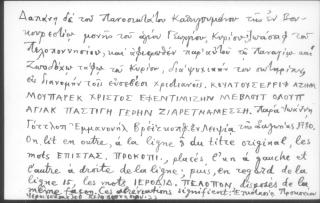 Δαπάνῃ δὲ τοῦ Πανοσιωτάτου Καθηγουμένου τῆς ἐν Βου-
κουρεστίῳ μονῆς τοῦ ἁγίου Γεωργίου, Κυρίου Ἰωάσαφ τοῦ
Πελοποννησίου, καὶ ἀφιερωθὲν παρ' αὐτοῦ τῷ Παναγίῳ καὶ
Ζωοδόχῳ τάφῳ τοῦ Κυρίου, διὰ ψυχικήν του σωτηρίαν,
εἰς διανομήν τοῖς εὐσεβέσι χριστιανοῖς. ΚΟΥΔΟΥΣ ΣΕΡΡΙΦ ΑΖΗΜ
ΜΟΥΠΑΡΕΚ ΧΡΙΣΤΟΣ ΕΦΕΝΤΙΜΙΖΗΝ ΜΕΒΛΟΥΤ ΟΛΟΥΠ
ΑΓΙΑΚ ΠΑΣΤΙΓΗ ΓΕΡΗΝ ΖΙΑΡΕΤΝΑΜΕΣΣΗ. Παρὰ Ἰωάννῃ
Γόττλοπ Ἐμμανουὴλ Βρεϊτκόπφ ἐν Λειψίᾳ τῆς Σαξωνίας 1780.
On lit en outre, à la ligne 9 du titre original, les
mots ΕΠΙΣΤΑΣ. ΠΡΟΚΟΠΙ., placés, l'un à gauche et
l'autre à droite de la ligne; puis, en regard de la
ligne 15, les mots ΙΕΡΟΔΙΔ. ΠΕΛΟΠΟΝ, disposés de la
même façon. Ces abréviations signifient: Ἐπιστασίᾳ Προκοπίου